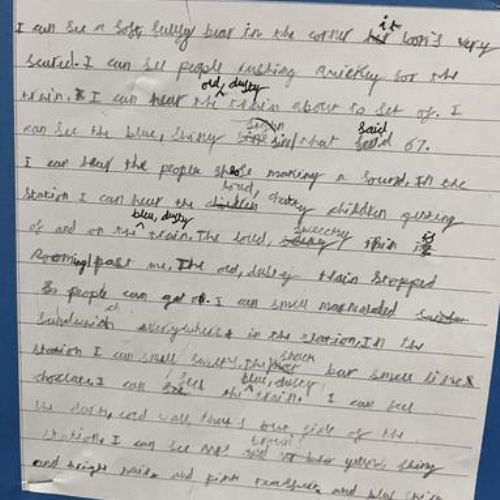 I can see a soft, fully bear in the corner it looks very
scared. I can see people rushing quickey for the
train. I can hear the old, dusty train about to set of. I
can see the blue, shiney sign that said 67.
I can hear the people shoes making a sound. In the
station I can hear the loud, chatty children getting
of and on the blue, dusty train. The loud, train is
Rooming past me. The old, dustey train stopped
so people can get o. I can smell marmalded
sandwich everywhere in the station. In the
station I can smell sweets. The snack bar smells like
choclate. I can feel the blue, dustey train. I can feel
the dark, cold wall, there's side of the
station. I can see yellow, shiny
and height and pink and